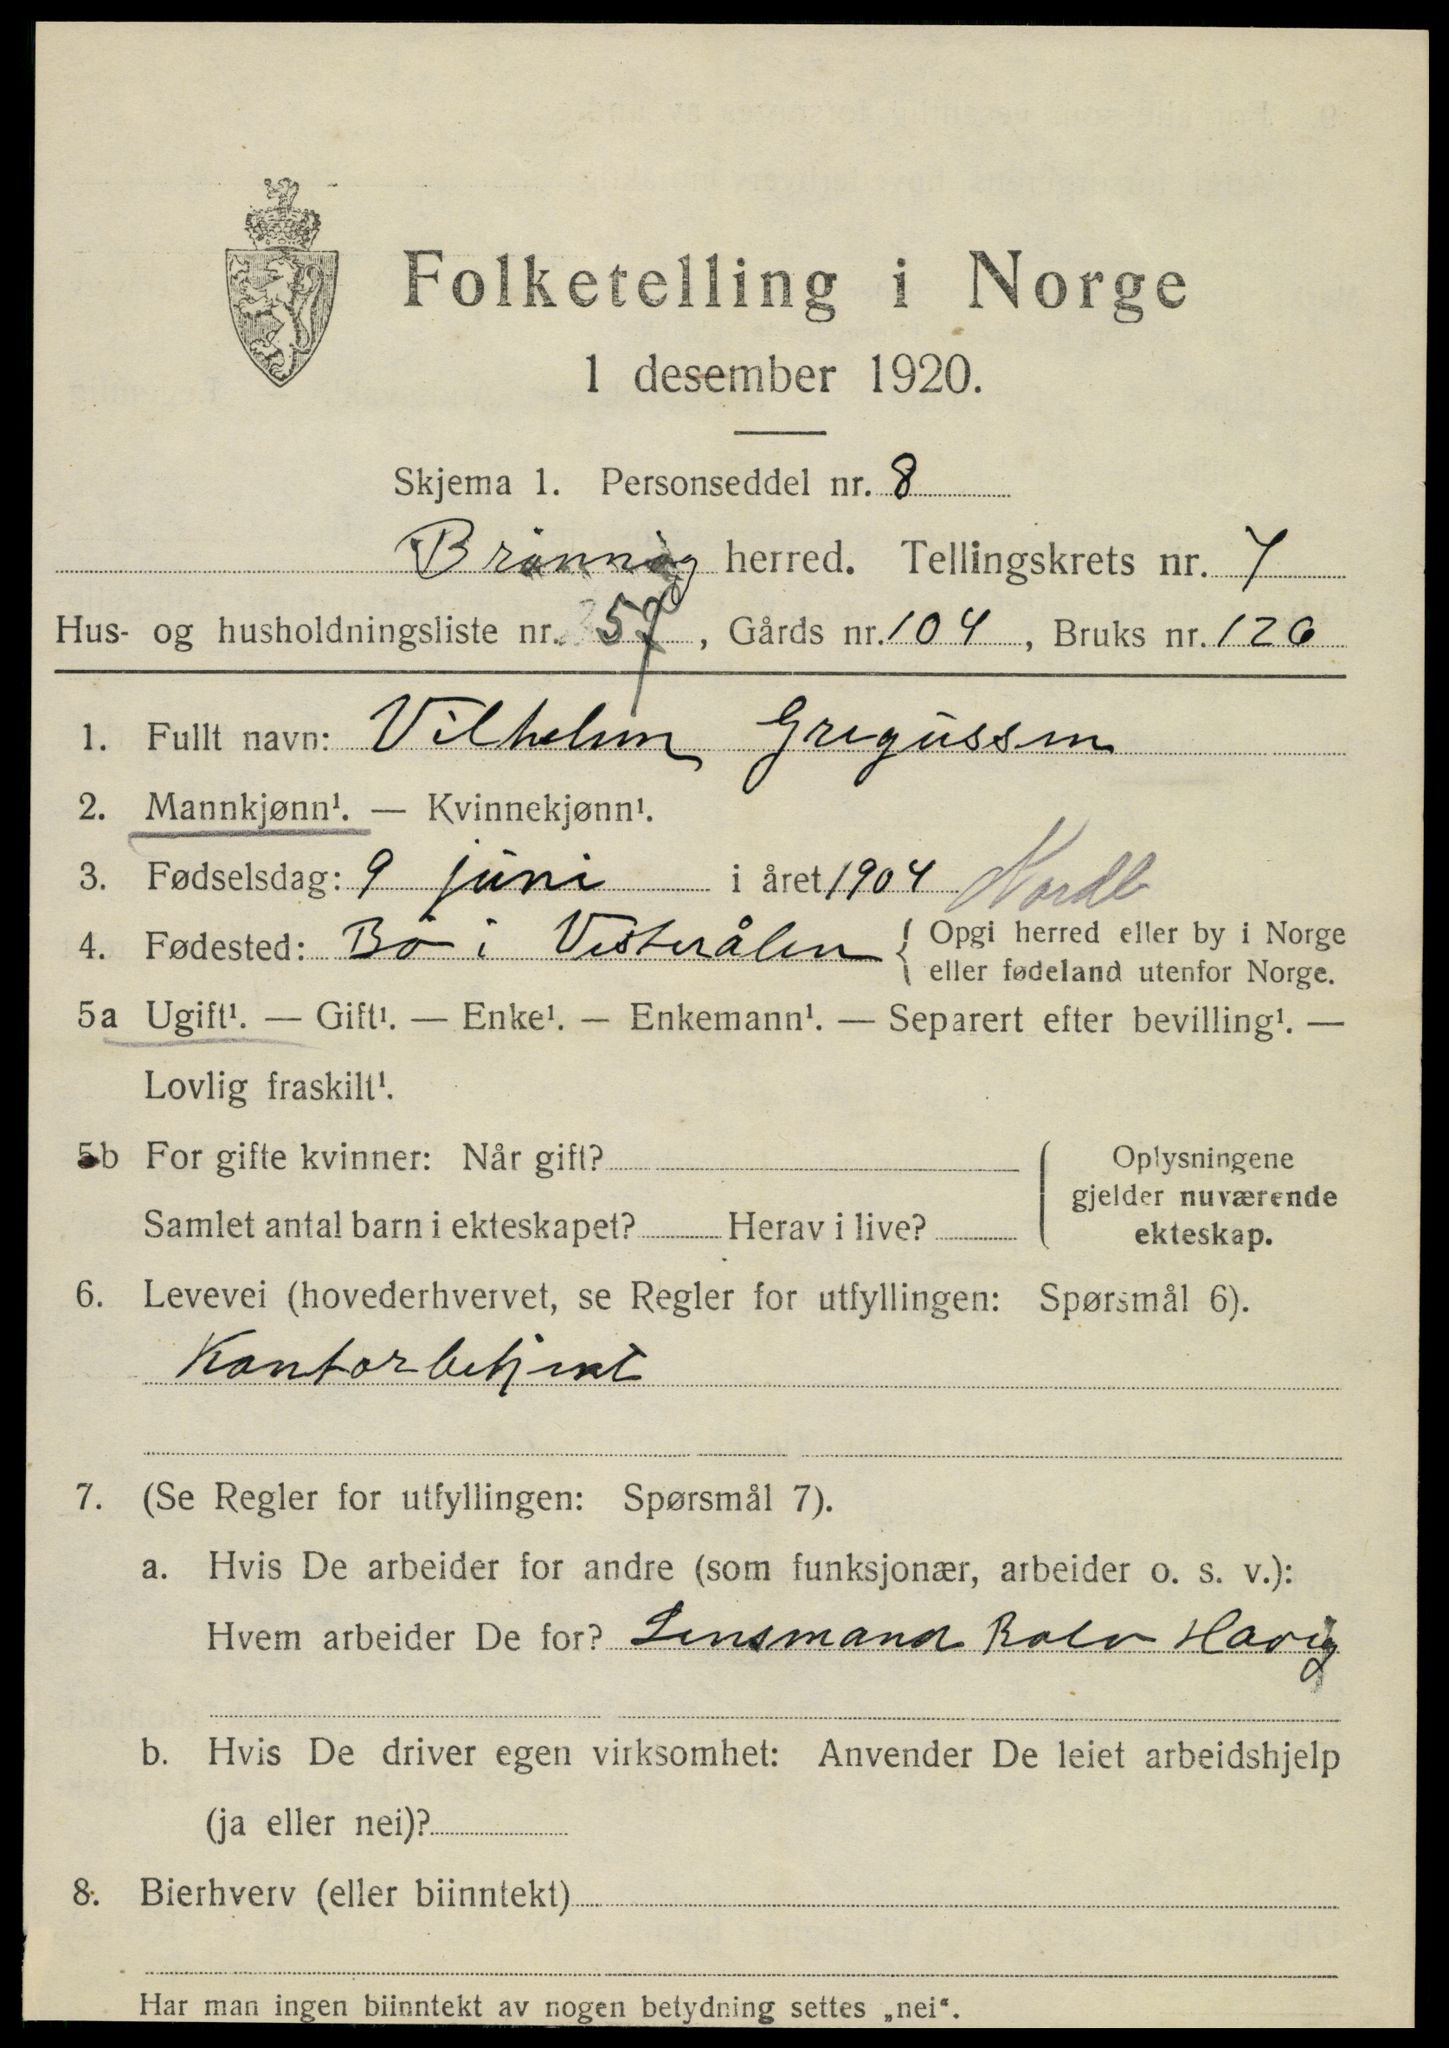 Folketelling i Norge
1 desember 1920.
Skjema 1. Personseddel nr. 8
Brønnøy herred. Tellingskrets nr. 7
Hus- og husholdningsliste nr. 57, Gårds nr. 104, Bruks nr. 126
1. Fullt navn: Vilhelm Gregussen
2. Mannkjønn¹. — Kvinnekjønn¹.
3. Fødselsdag: 9 juni i året 1904 Nordl
4. Fødested: Bø i Vesterålen { Opgi herred eller by i Norge
eller fødeland utenfor Norge.
5a Ugift¹. — Gift¹. — Enke¹. — Enkemann¹. — Separert efter bevilling¹. —
Lovlig fraskilt¹.
5b For gifte kvinner: Når gift?
Samlet antal barn i ekteskapet? Herav i live?
Oplysningene
gjelder nuværende
ekteskap.
6. Levevei (hovederhvervet, se Regler for utfyllingen: Spørsmål 6).
Kontorbetjent
7. (Se Regler for utfyllingen: Spørsmål 7).
a. Hvis De arbeider for andre (som funksjonær, arbeider o. s. v.):
Hvem arbeider De for? Lensmand Rolv Havig
b. Hvis De driver egen virksomhet: Anvender De leiet arbeidshjelp
(ja eller nei)?
8. Bierhverv (eller biinntekt)
Har man ingen biinntekt av nogen betydning settes „nei“.